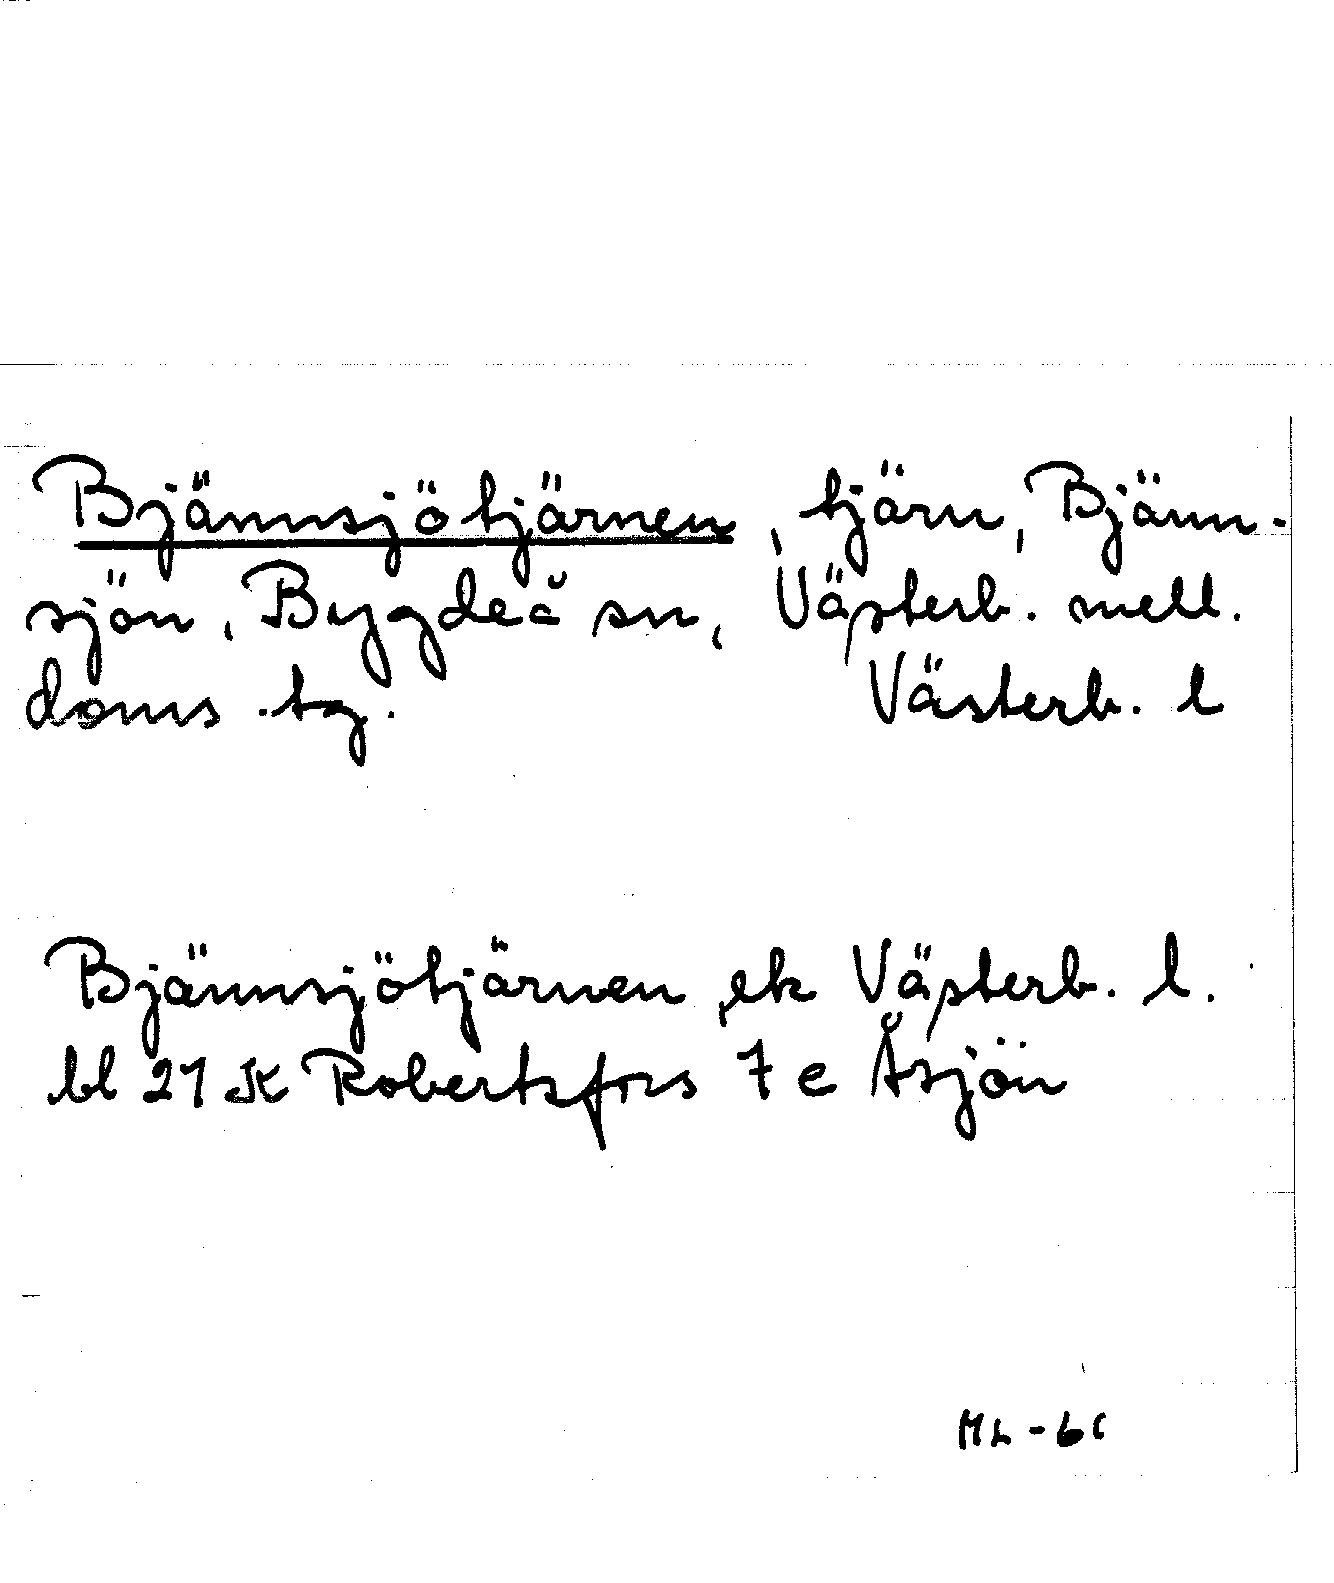 Bjännsjötjärnen, tjärn, Bjänn-
sjön, Bygdeå sn, Västerb. mell.
doms.tg. Västerb. l
Bjännsjötjärnen, ek Västerb. l.
bl 21 K Robertsfors 7 e Åsjön